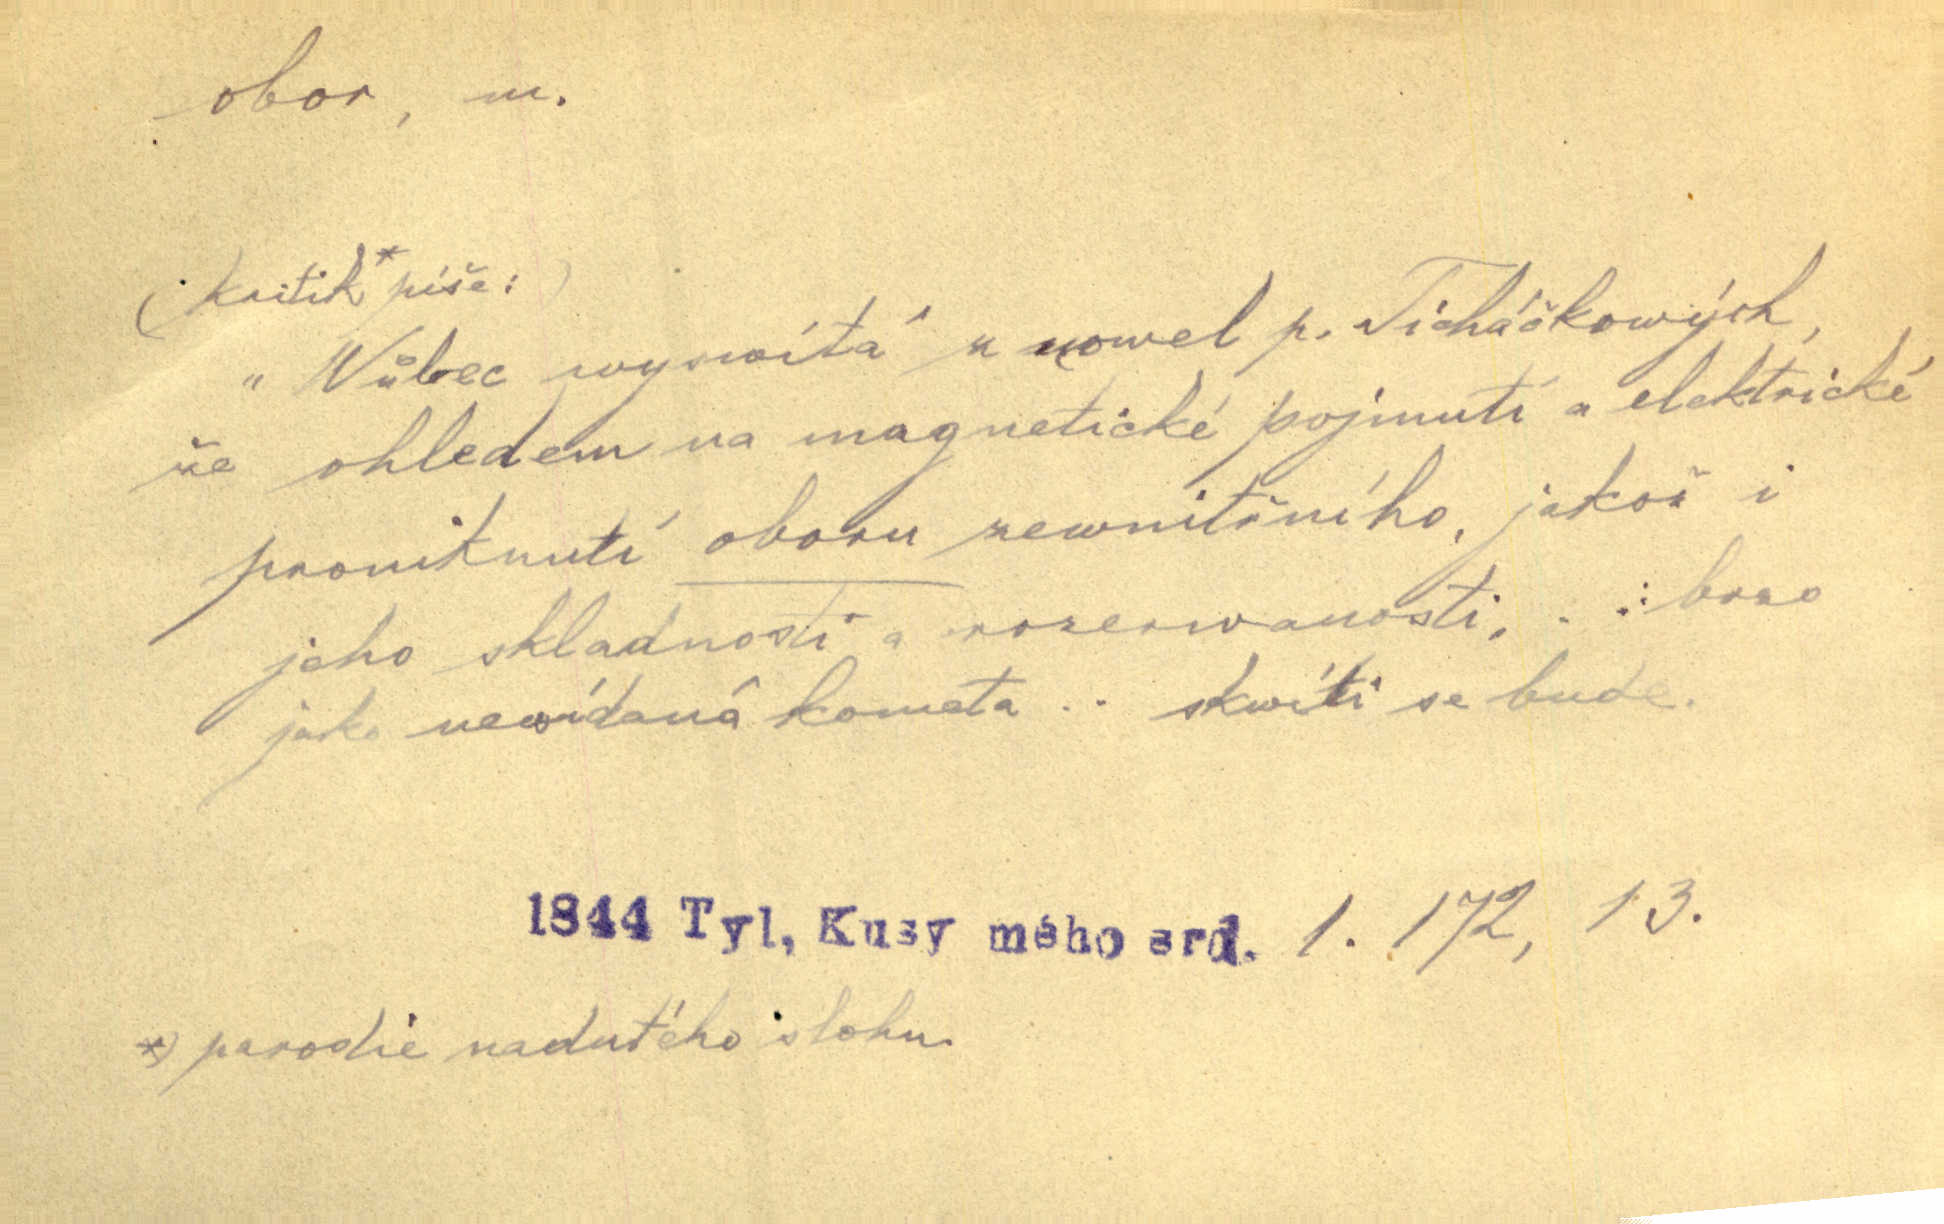 obor, m.
(kritik* píše:)
„Wůbec wyswítá z nowel p. Ticháčkowých,
že ohledem na magnetické pojmutí a elektrické
proniknutí oboru zewnitřního, jakož i
jeho skladnosti a rozerwanosti, . . : brzo
jako newídaná kometa . . skwíti se bude.
1844 Tyl, Kusy mého srd. 1. 172, 13.
*) parodie nadutého slohu.